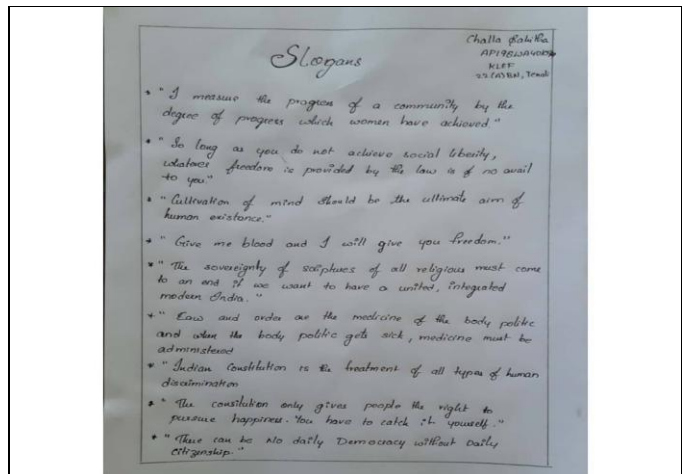 Slogans
Challa
KLEF
* "I measure the progress of a community by the
degree of progress which women have achieved"
* "So long as you do not achieve social liberity,
whatever freedom is provided by the law is of no avail
to you."
* "Cultivation of mind should be the ultimate aim of
human existance."
* "Give me blood and I will give you freedom."
* "The sovereignty of scriptures of all religious must come
to an end if we want to have a united, integrated
modern India."
* "Law and order are the medicine of the body politic
and when the body politic gets sick, medicine must be
administered
* "Indian Constitution is the treatment of all types of human
discrimination
* "The consitution only gives people the right to
pursue happiness. You have to catch it yourself."
* "There can be No daily Democracy without Daily
Citizenship."